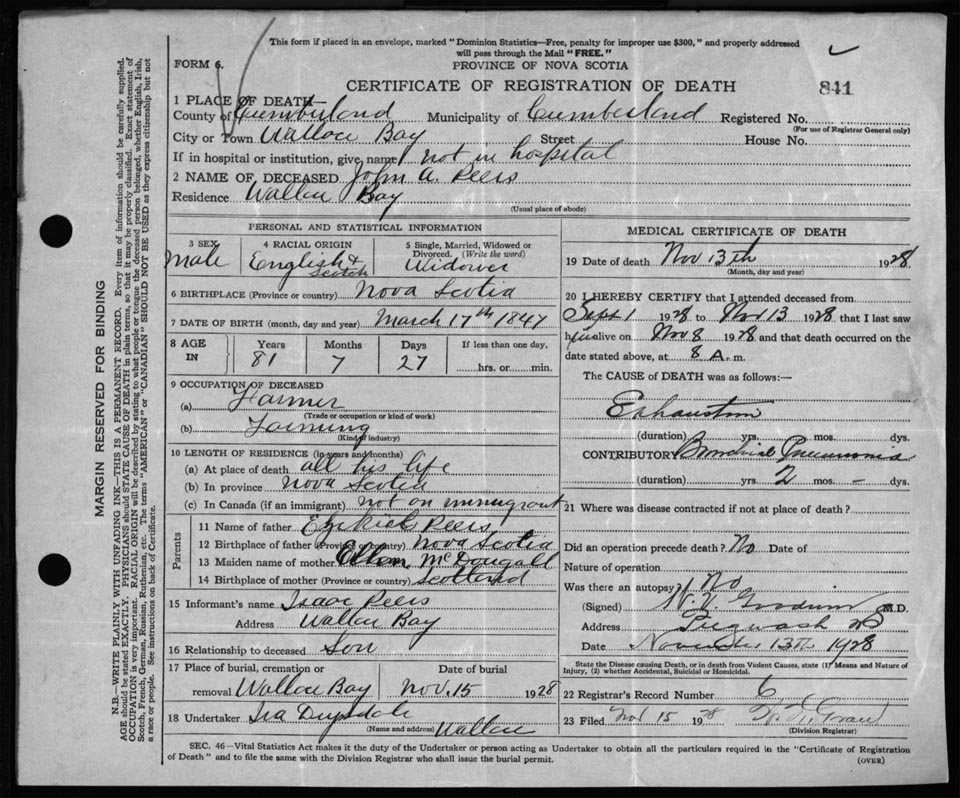 This form if placed in an envelope, marked "Dominion Statistics—Free, penalty for improper use $300," and properly addressed
will pass through the Mail "FREE."
FORM 6.
PROVINCE OF NOVA SCOTIA
CERTIFICATE OF REGISTRATION OF DEATH
841
1 PLACE OF DEATH—
County of Cumberland Municipality of Cumberland Registered No.
(For use of Registrar General only)
City or Town Wallace Bay Street House No.
If in hospital or institution, give name not in hospital
2 NAME OF DECEASED John A. Peers
Residence Wallace Bay
(Usual place of abode)
PERSONAL AND STATISTICAL INFORMATION
3 SEX
Male
4 RACIAL ORIGIN
English & Scotch
5 Single, Married, Widowed or Divorced. (Write the word)
Widower
6 BIRTHPLACE (Province or country) Nova Scotia
7 DATE OF BIRTH (month, day and year) March 17th 1847
8 AGE IN
Years
81
Months
7
Days
27
If less than one day,
hrs. or min.
9 OCCUPATION OF DECEASED
(a) Farmer
(Trade or occupation or kind of work)
(b) Farming
(Kind of industry)
10 LENGTH OF RESIDENCE (in years and months)
(a) At place of death all his life
(b) In province Nova Scotia
(c) In Canada (if an immigrant) not an immigrant
Parents
11 Name of father Ezekiel Peers
12 Birthplace of father (Province or country) Nova Scotia
13 Maiden name of mother Ellen McDougald
14 Birthplace of mother (Province or country) Scotland
15 Informant's name Isaac Peers
Address Wallace Bay
16 Relationship to deceased Son
17 Place of burial, cremation or removal Wallace Bay
Date of burial
Nov. 15 1928
18 Undertaker Ira Drysdale
(Name and address) Wallace
MEDICAL CERTIFICATE OF DEATH
19 Date of death Nov 13th 1928
(Month, day and year)
20 I HEREBY CERTIFY that I attended deceased from
Sept 1 1928 to Nov 13 1928 that I last saw
him alive on Nov 8 1928 and that death occurred on the
date stated above, at 8 A. m.
The CAUSE of DEATH was as follows:—
Exhaustion
(duration) yrs. mos. dys.
CONTRIBUTORY Bronchial Pneumonia
(duration) yrs. 2 mos. - dys.
21 Where was disease contracted if not at place of death?
Did an operation precede death? No Date of
Nature of operation
Was there an autopsy? No
(Signed) M.D.
Address Pugwash NS
Date November 13th 1928
State the Disease causing Death, or in death from Violent Causes, state (1) Means and Nature of
Injury, (2) whether Accidental, Suicidal or Homicidal.
22 Registrar's Record Number 6
23 Filed Nov 15 1928
(Division Registrar)
SEC. 46—Vital Statistics Act makes it the duty of the Undertaker or person acting as Undertaker to obtain all the particulars required in the "Certificate of Registration
of Death" and to file the same with the Division Registrar who shall issue the burial permit.
(OVER)
MARGIN RESERVED FOR BINDING
N.B.—WRITE PLAINLY WITH UNFADING INK—THIS IS A PERMANENT RECORD. Every item of information should be carefully supplied.
AGE should be stated EXACTLY. PHYSICIANS should STATE CAUSE OF DEATH in plain terms, so that it may be properly classified. Exact statement of
OCCUPATION is very important. RACIAL ORIGIN will be described by stating to what people or tongue the deceased person belonged, whether English, Irish,
Scotch, French, German, Russian, Ruthenian, etc. The terms "AMERICAN" or "CANADIAN" SHOULD NOT BE USED as they express citizenship but not
a race or people. See instructions on back of Certificate.